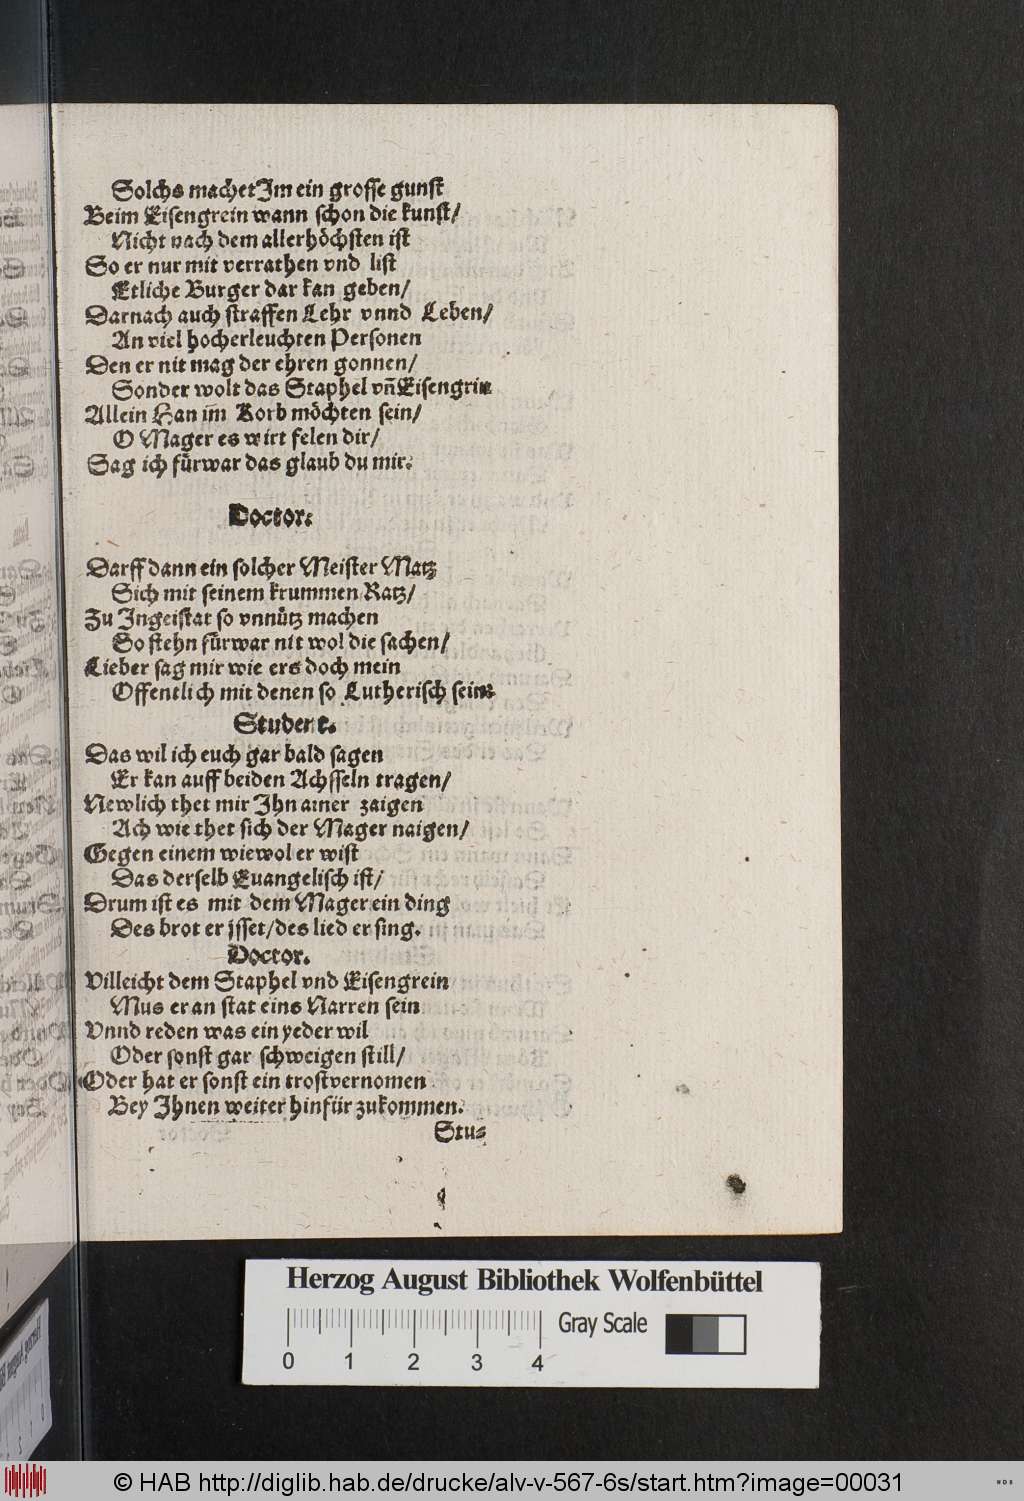 Solchs machet Im ein grosse gunst
Beim Eisengrein wann schon die kunst/
Nicht nach dem allerhöchsten ist
So er nur mit verrathen vnd list
Etliche Burger dar kan geben/
Darnach auch straffen Lehr vnnd Leben/
An viel hocherleuchten Personen
Den er nit mag der ehren gonnen/
Sonder wolt das Staphel vñ Eisengrin
Allein Han im̄ Korb möchten sein/
O Mager es wirt felen dir/
Sag ich fürwar das glaub du mir.
Doctor:
Darff dann ein solcher Meister Matz
Sich mit seinem krummen Ratz/
Zu Ingelstat so vnnütz machen
So stehn fürwar nit wol die sachen/
Lieber sag mir wie ers doch mein
Offentlich mit denen so Lutherisch sein
Student.
Das wil ich euch gar bald sagen
Er kan auff beiden Achsseln tragen/
Newlich thet mir Ihn ainer zaigen
Ach wie thet sich der Mager naigen/
Gegen einem wiewol er wist
Das derselb Euangelisch ist/
Drum ist es mit dem Mager ein ding
Des brot er jsset/des lied er sing.
Doctor.
Villeicht dem Staphel vnd Eisengrein
Mus er an stat eins Narren sein
Vnnd reden was ein yeder wil
Oder sonst gar schweigen still/
Oder hat er sonst ein trost vernomen
Bey Ihnen weiter hinfür zukommen.
Stu-
Herzog August Bibliothek Wolfenbüttel
Gray Scale
0 1 2 3 4
© HAB http://diglib.hab.de/drucke/alv-v-567-6s/start.htm?image=00031